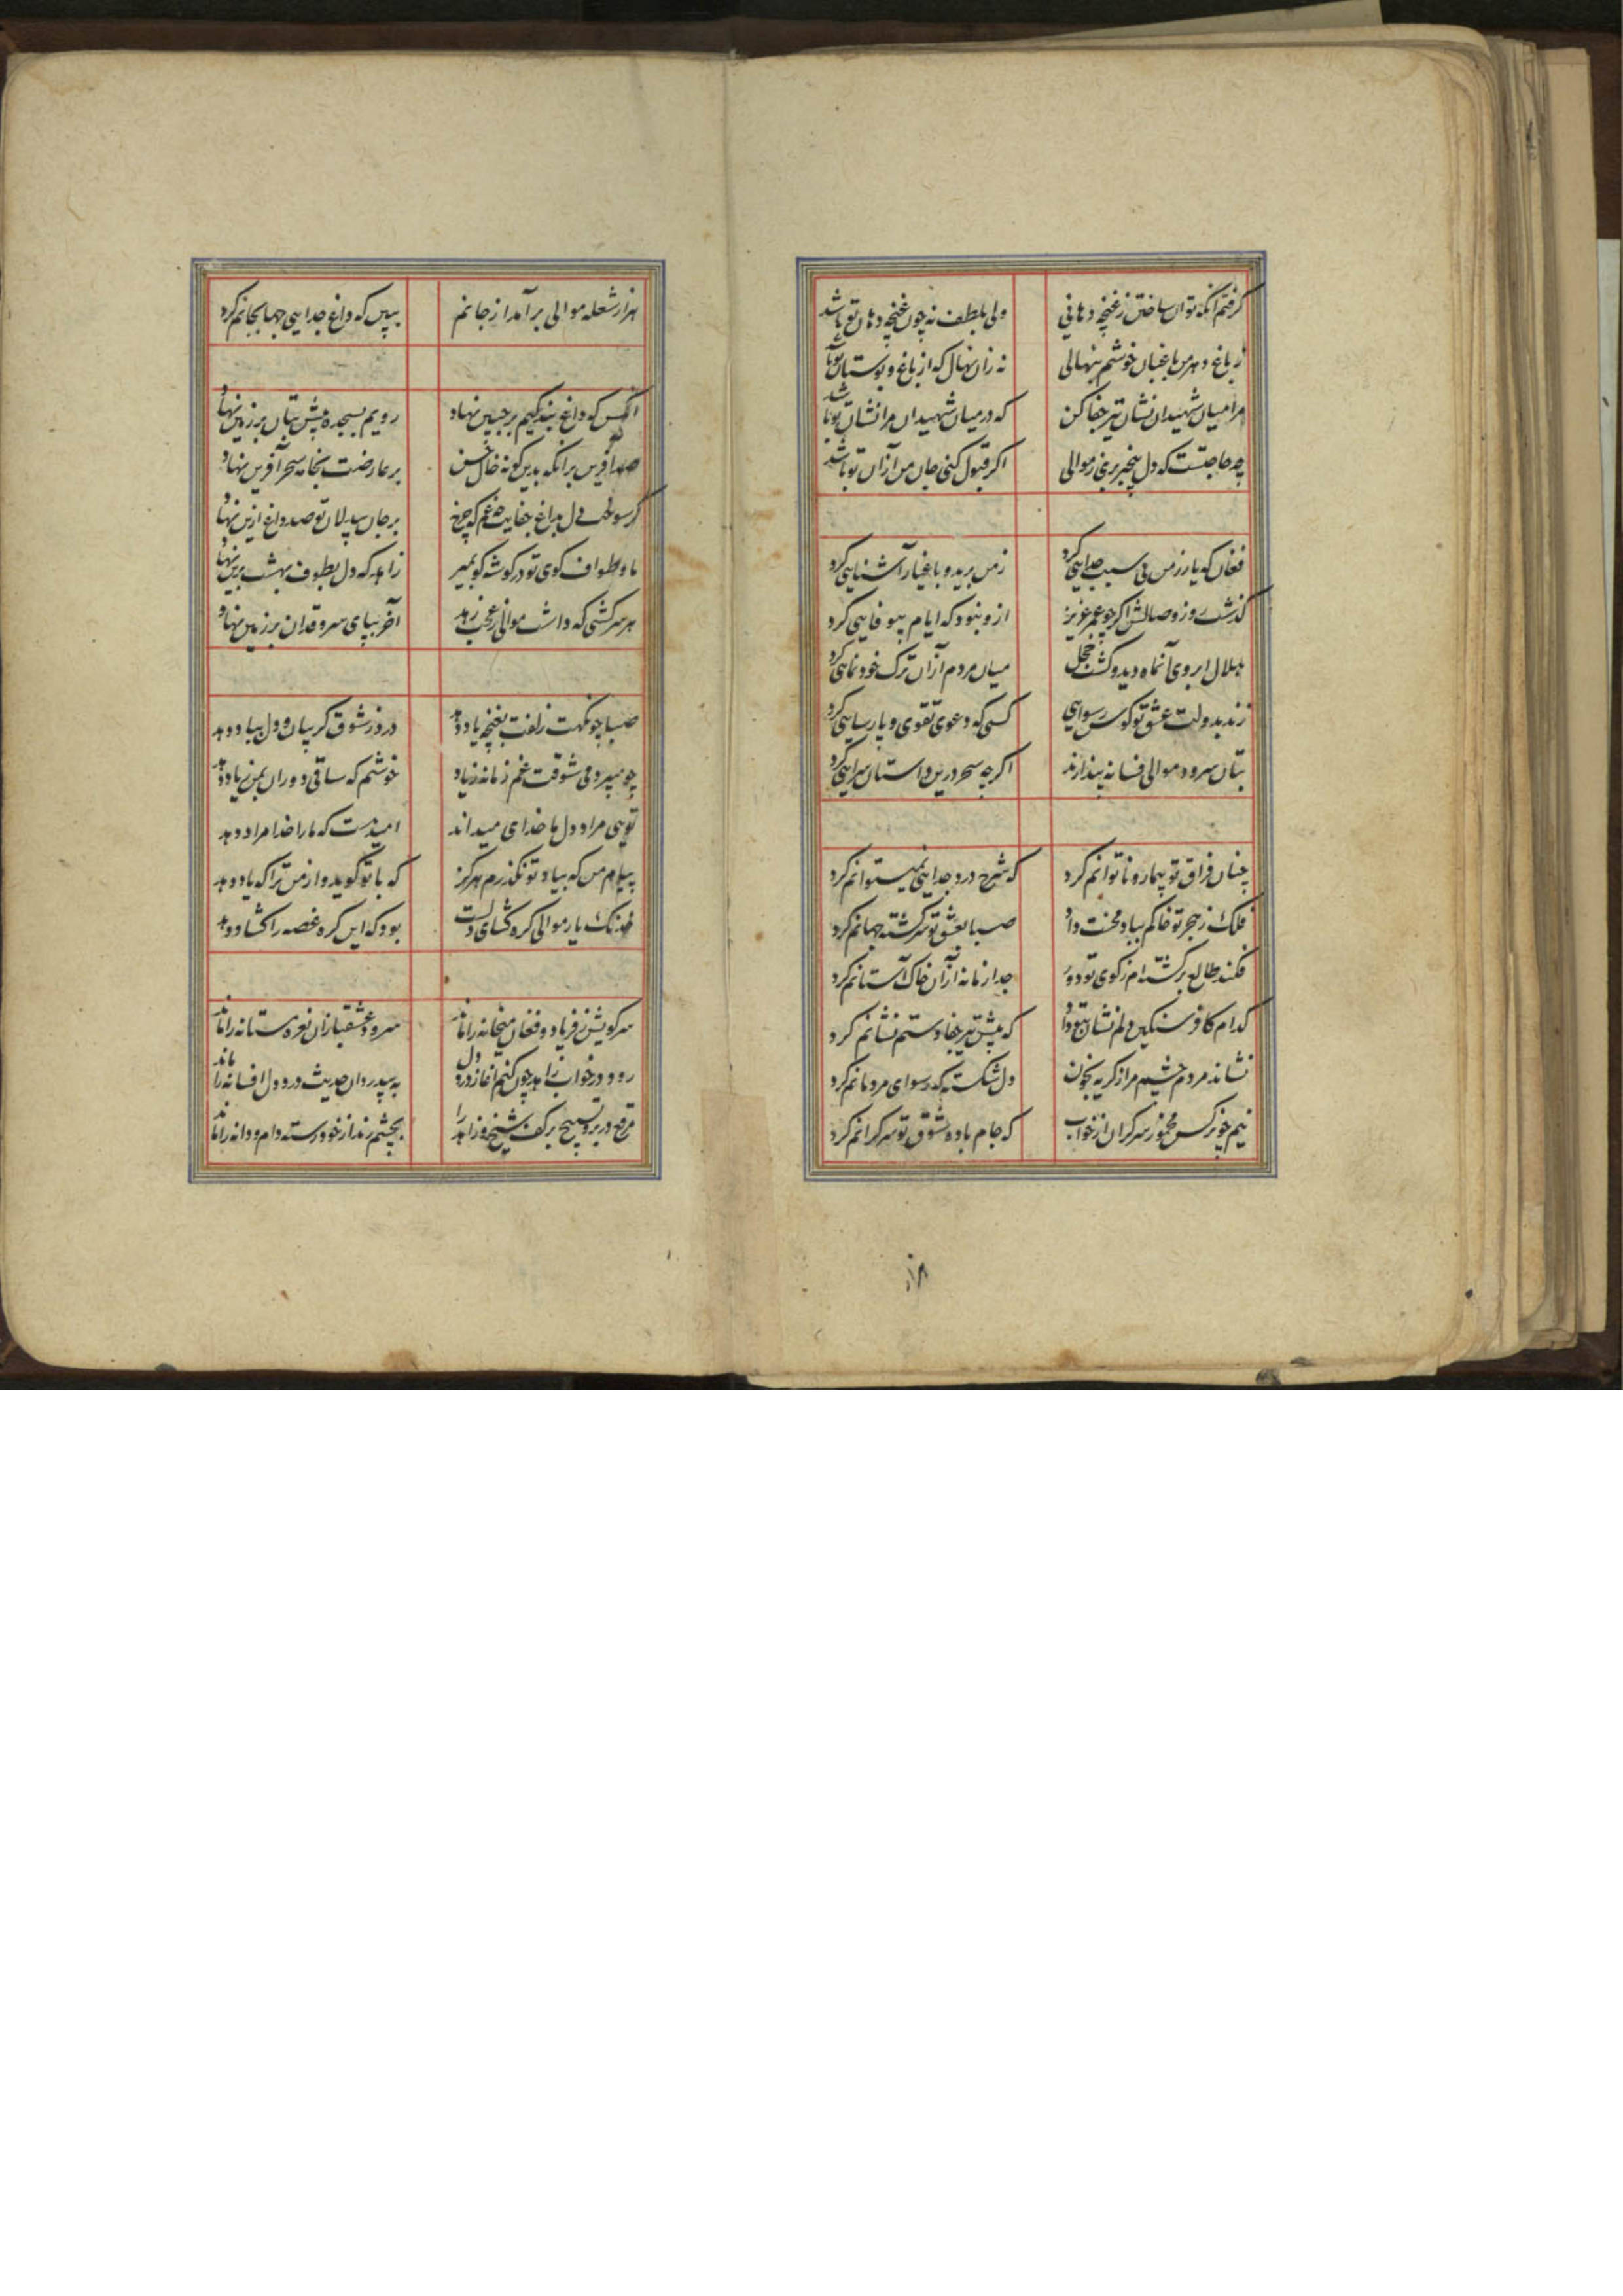 گرفتم آنکه توان ساختن ز غنچه دهانی
ولی بلطف نه چون غنچه دهان تو باشد
ز باغ دهر من باغبان خوشم بنهالی
نه زان نهال که از باغ و بوستان تو باشد
مرا میان شهیدان نشان تیر جفا کن
که در میان شهیدان مرا نشان تو باشد
چه حاجتست که دل بری ز موالی
اگر قبول کنی جان من از آن تو باشد
فغان که یار ز من بی سبب جدایی کرد
ز من برید و با غیار آشنایی کرد
گذشت روز وصالش اگر چو عمر عزیز
ازو نبود که ایام بیوفایی کرد
هلال ابروی آنماه دید و گشت خجل
میان مردم از آن ترک خودنمایی کرد
زند بدولت عشق تو کوس رسوایی
کسی که دعوی تقوی و پارسایی کرد
بتان سرود موالی فسانه پندارند
اگر چه سحر درین داستان سرایی کرد
چنان فراق تو بیمار و ناتوانم کرد
که شرح درد جدایی نمیتوانم کرد
فلک ز هجر تو خاکم بباد محنت داد
صبا بعشق تو سرگشته جهانم کرد
فکند طالع برگشته ام ز کوی تو دور
جدا زمانه از آن خاک آستانم کرد
کدام کافر سنگین دلم نشان بتو داد
که پیش تیر جفا و ستم نشانم کرد
نشاند مردم چشم مرا ز گریه بخون
دل شکسته که رسوای مردمانم کرد
نیم چو نرگس مخمور سرگران از خواب
که جام باده شوق تو سرگرانم کرد
هزار شعله موالی برآمد از جانم
ببین که داغ جدایی چها بجانم کرد
آنکس که داغ بندگیم بر جبین نهاد
رویم بسجده پیش بتان بر زمین نهاد
صد آفرین بر آنکه بدین گونه خال حسن
بر عارضت بخامه سحر آفرین نهاد
گر سوخت دل بداغ جفایت چه غم که چرخ
بر جان بیدلان تو صد داغ ازین نهاد
ما و طواف کوی تو در گوشه گو بمیر
زاهد که دل بطوف بهشت برین نهاد
هر سرکشی که داشت موالی ز عجب زهد
آخر بپای سرو قدان بر زمین نهاد
صبا چو نکهت زلفت بغنچه یاد دهد
درد ز شوق گریبان و دل بباد دهد
چو میبرد می شوقت غم زمانه ز یاد
خوشم که ساقی دوران بمن زیاد دهد
تویی مراد دل ما خدای میداند
امیدست که ما را خدا مراد دهد
پیام من که بیاد تو نگذرم هرگز
که با تو گوید و از من ترا که یاد دهد
خدنگ یار موالی گره گشای دلست
بود که این گره غصه را گشاد دهد
سر کویش ز فریاد و فغان میخانه را ماند
سرود عشقبازان نعره مستانه را ماند
رود در خواب زاهد چون کنم آغاز درد دل
به بیدردان حدیث درد دل افسانه را ماند
مرقع در بر و تسبیح بر کف شیخ و زاهد را
بچشم رند از خود رسته دام و دانه را ماند